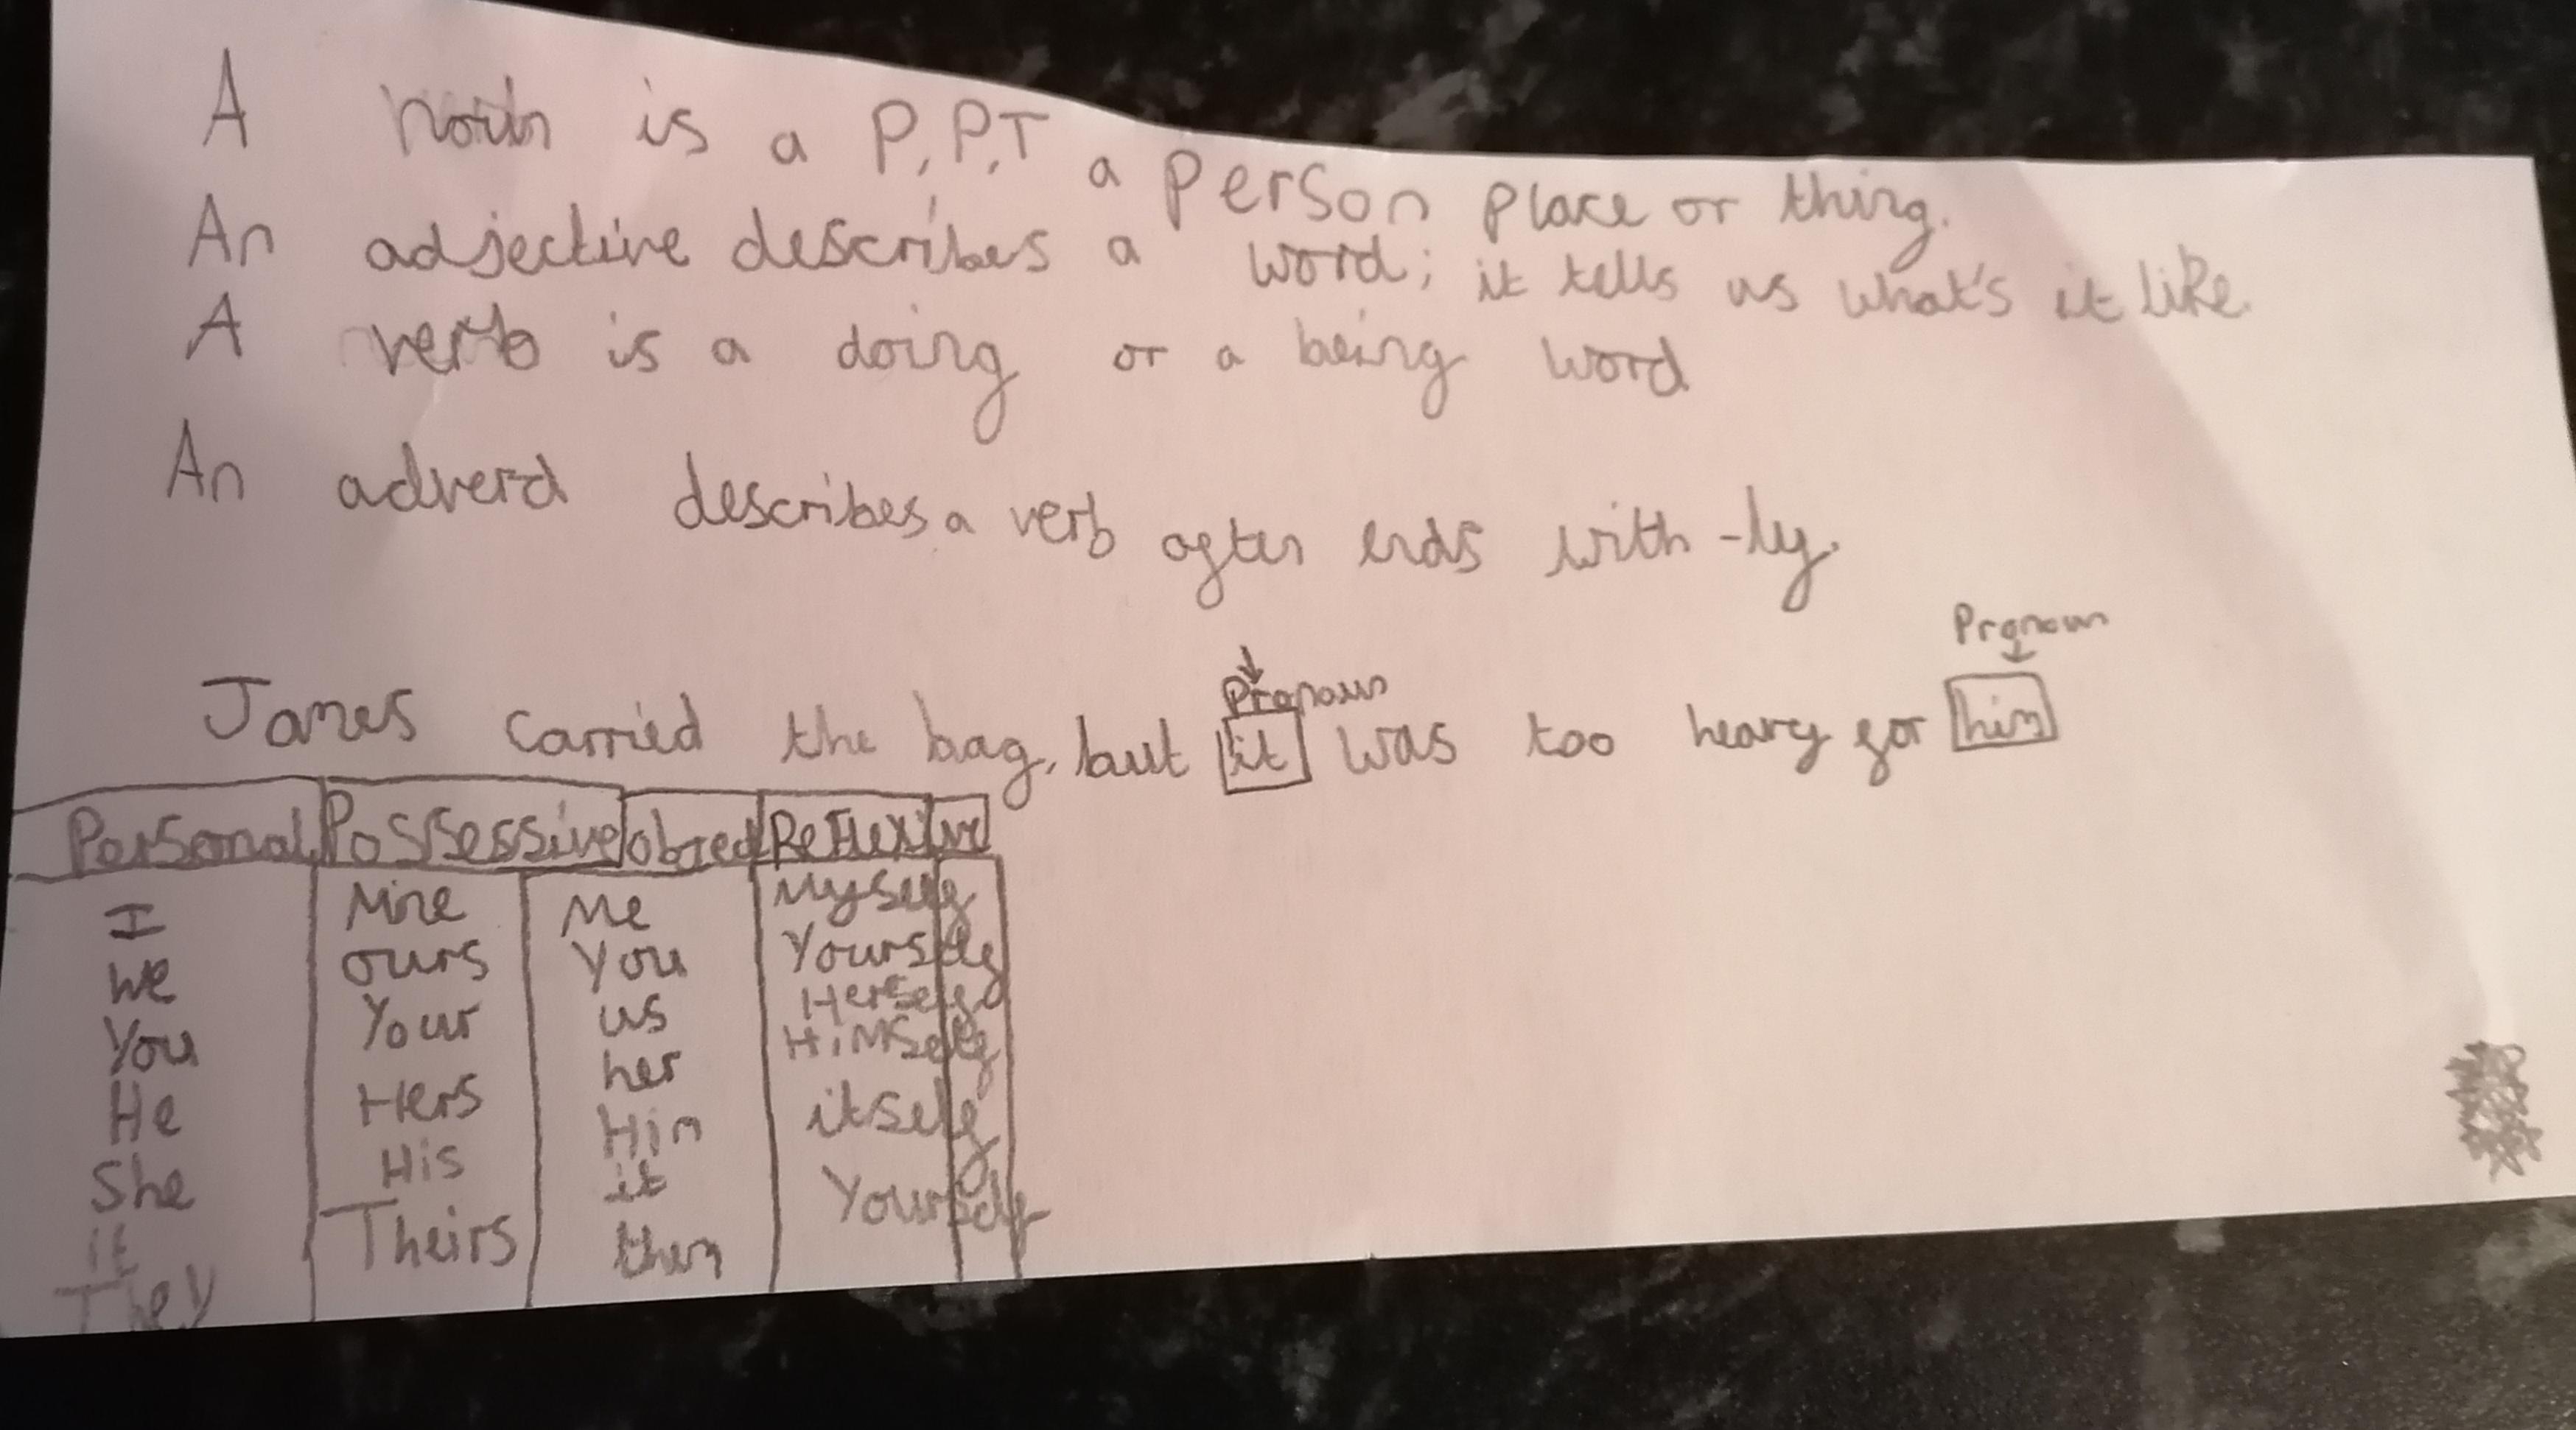 A noun is a P,P,T a person place or thing.
An adjective describes a word; it tells us what's it like.
A verb is a doing or a being word
An adverd describes a verb often ends with -ly.
Pronoun
Pronoun
James carried the bag, but it was too heavy for him
Personal Possessive object Reflexive
I Mine Me Myself
We ours You Yourself
You Your us Herself
He Hers her Himself
She His Him itself
it Theirs it Yourself
They them